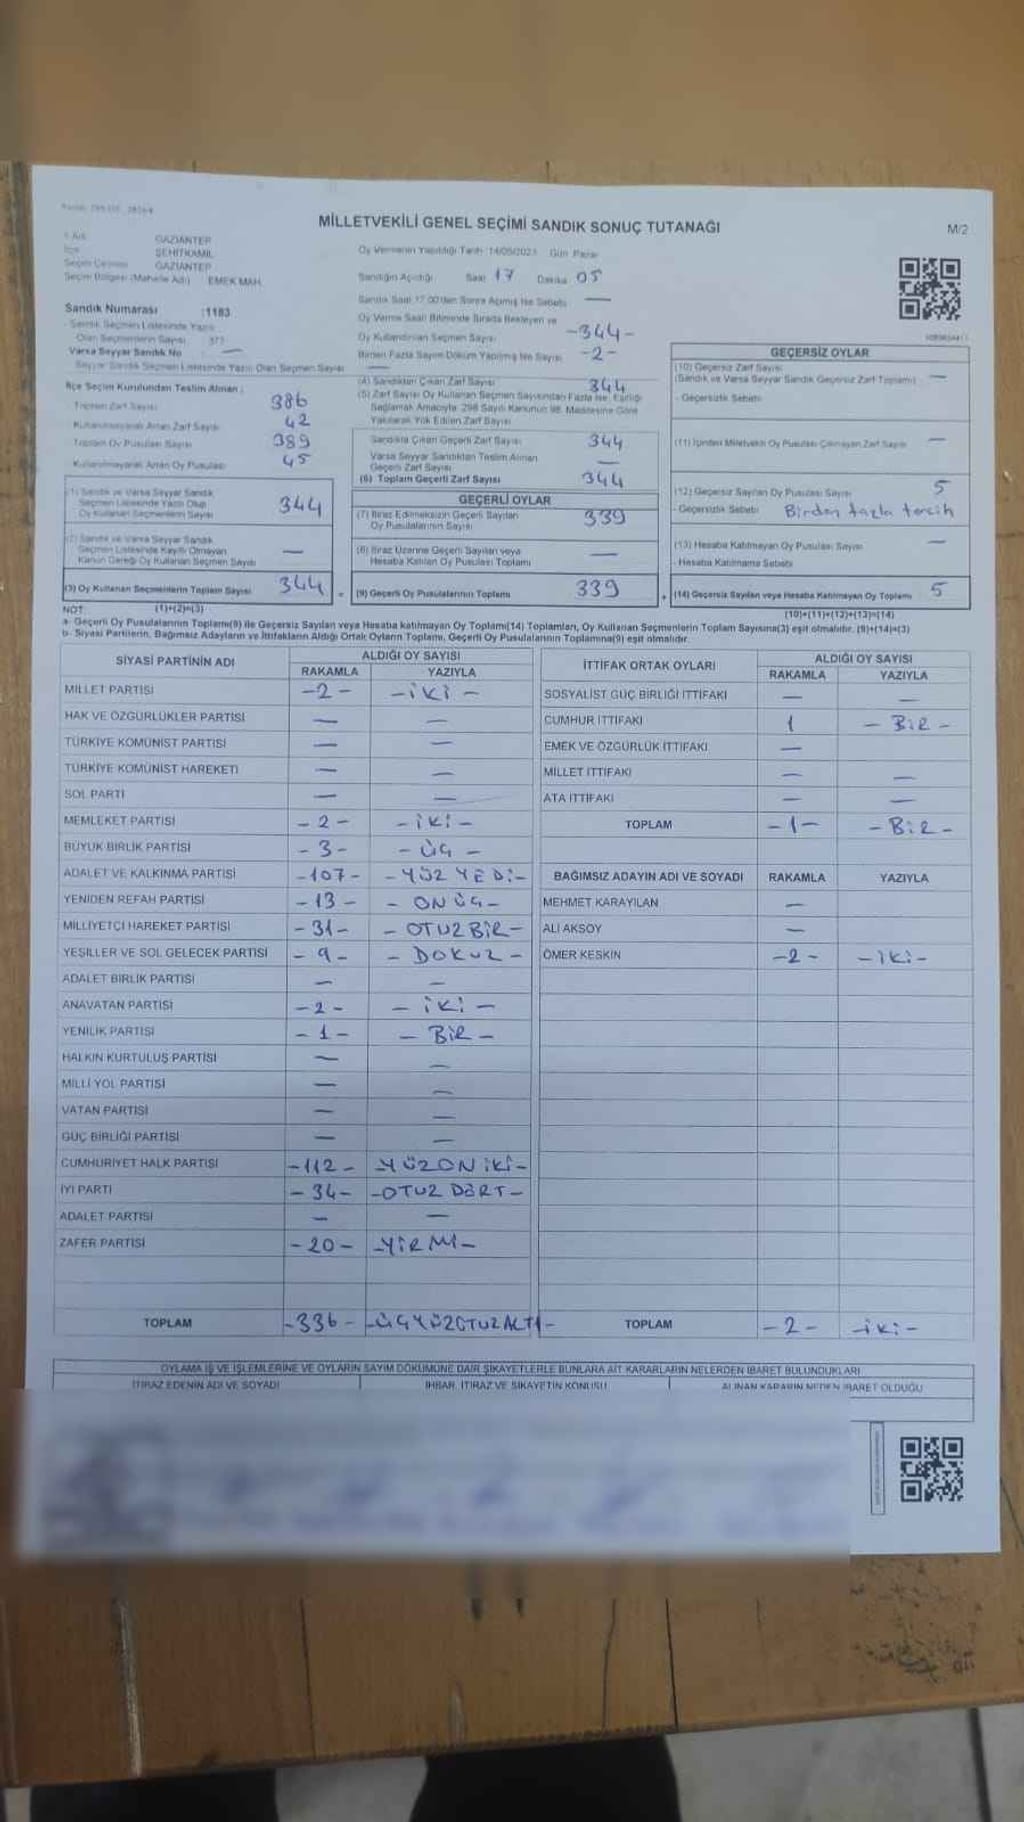 MİLLETVEKİLİ GENEL SEÇİMİ SANDIK SONUÇ TUTANAĞI
M/2
GAZİANTEP
İlçe ŞEHİTKAMİL
Seçim Çevresi GAZİANTEP
Seçim Bölgesi (Mahalle Adı) EMEK MAH.
Oy Vermenin Yapıldığı Tarih 14/05/2023 Gün Pazar
Sandığın Açıldığı Saat 17 Dakika 05
Sandık Saat 17.00'den Sonra Açılmış İse Sebebi —
Oy Verme Saati Bitiminde Sırada Bekleyen ve
Oy Kullandırılan Seçmen Sayısı -344-
Birden Fazla Sayım Döküm Yapılmış İse Sayısı -2-
Sandık Numarası :1183
Sandık Seçmen Listesinde Yazılı
Olan Seçmenlerin Sayısı 377
Varsa Seyyar Sandık No —
Seyyar Sandık Seçmen Listesinde Yazılı Olan Seçmen Sayısı —
İlçe Seçim Kurulundan Teslim Alınan :
Toplam Zarf Sayısı 386
Kullanılmayarak Artan Zarf Sayısı 42
Toplam Oy Pusulası Sayısı 389
Kullanılmayarak Artan Oy Pusulası 45
(1) Sandık ve Varsa Seyyar Sandık
Seçmen Listesinde Yazılı Olup
Oy Kullanan Seçmenlerin Sayısı 344
(2) Sandık ve Varsa Seyyar Sandık
Seçmen Listesinde Kayıtlı Olmayan
Kanun Gereği Oy Kullanan Seçmen Sayısı —
(3) Oy Kullanan Seçmenlerin Toplam Sayısı 344
(4) Sandıktan Çıkan Zarf Sayısı 344
(5) Zarf Sayısı Oy Kullanan Seçmen Sayısından Fazla İse, Eşitliği
Sağlamak Amacıyla 298 Sayılı Kanunun 98. Maddesine Göre
Yakılarak Yok Edilen Zarf Sayısı
Sandıkta Çıkan Geçerli Zarf Sayısı 344
Varsa Seyyar Sandıktan Teslim Alınan
Geçerli Zarf Sayısı —
(6) Toplam Geçerli Zarf Sayısı 344
GEÇERLİ OYLAR
(7) İtiraz Edilmeksizin Geçerli Sayılan
Oy Pusulalarının Sayısı 339
(8) İtiraz Üzerine Geçerli Sayılan veya
Hesaba Katılan Oy Pusulası Toplamı —
(9) Geçerli Oy Pusulalarının Toplamı 339
GEÇERSİZ OYLAR
(10) Geçersiz Zarf Sayısı
(Sandık ve Varsa Seyyar Sandık Geçersiz Zarf Toplamı) —
- Geçersizlik Sebebi
(11) İçinden Milletvekili Oy Pusulası Çıkmayan Zarf Sayısı —
(12) Geçersiz Sayılan Oy Pusulası Sayısı 5
- Geçersizlik Sebebi Birden fazla tercih
(13) Hesaba Katılmayan Oy Pusulası Sayısı —
- Hesaba Katılmama Sebebi
(14) Geçersiz Sayılan veya Hesaba Katılmayan Oy Toplamı 5
NOT: (1)+(2)=(3) (10)+(11)+(12)+(13)=(14)
a- Geçerli Oy Pusulalarının Toplamı(9) ile Geçersiz Sayılan veya Hesaba katılmayan Oy Toplamı(14) Toplamları, Oy Kullanan Seçmenlerin Toplam Sayısına(3) eşit olmalıdır. (9)+(14)=(3)
b- Siyasi Partilerin, Bağımsız Adayların ve İttifakların Aldığı Ortak Oyların Toplamı, Geçerli Oy Pusulalarının Toplamına(9) eşit olmalıdır.
SİYASİ PARTİNİN ADI ALDIĞI OY SAYISI
RAKAMLA YAZIYLA
MİLLET PARTİSİ -2- -iKi-
HAK VE ÖZGÜRLÜKLER PARTİSİ — —
TÜRKİYE KOMÜNİST PARTİSİ — —
TÜRKİYE KOMÜNİST HAREKETİ — —
SOL PARTİ — —
MEMLEKET PARTİSİ -2- -iKi-
BÜYÜK BİRLİK PARTİSİ -3- -ÜÇ-
ADALET VE KALKINMA PARTİSİ -107- -YÜZ YEDİ-
YENİDEN REFAH PARTİSİ -13- -ON ÜÇ-
MİLLİYETÇİ HAREKET PARTİSİ -31- -OTUZ BİR-
YEŞİLLER VE SOL GELECEK PARTİSİ -9- -DOKUZ-
ADALET BİRLİK PARTİSİ — —
ANAVATAN PARTİSİ -2- -iKi-
YENİLİK PARTİSİ -1- -BİR-
HALKIN KURTULUŞ PARTİSİ — —
MİLLİ YOL PARTİSİ — —
VATAN PARTİSİ — —
GÜÇ BİRLİĞİ PARTİSİ — —
CUMHURİYET HALK PARTİSİ -112- -YÜZ ON İKİ-
İYİ PARTİ -34- -OTUZ DÖRT-
ADALET PARTİSİ — —
ZAFER PARTİSİ -20- -YİRMİ-
TOPLAM -336- -ÜÇ YÜZ OTUZ ALTI-
İTTİFAK ORTAK OYLARI ALDIĞI OY SAYISI
RAKAMLA YAZIYLA
SOSYALİST GÜÇ BİRLİĞİ İTTİFAKI — —
CUMHUR İTTİFAKI 1 -BİR-
EMEK VE ÖZGÜRLÜK İTTİFAKI —
MİLLET İTTİFAKI — —
ATA İTTİFAKI — —
TOPLAM -1- -BİR-
BAĞIMSIZ ADAYIN ADI VE SOYADI RAKAMLA YAZIYLA
MEHMET KARAYILAN —
ALİ AKSOY —
ÖMER KESKİN -2- -İKİ-
TOPLAM -2- -İKİ-
OYLAMA İŞ VE İŞLEMLERİNE VE OYLARIN SAYIM DÖKÜMÜNE DAİR ŞİKAYETLERLE BUNLARA AİT KARARLARIN NELERDEN İBARET BULUNDUKLARI
İTİRAZ EDENİN ADI VE SOYADI İHBAR, İTİRAZ VE ŞİKAYETİN KONUSU ALINAN KARARIN NEDEN İBARET OLDUĞU